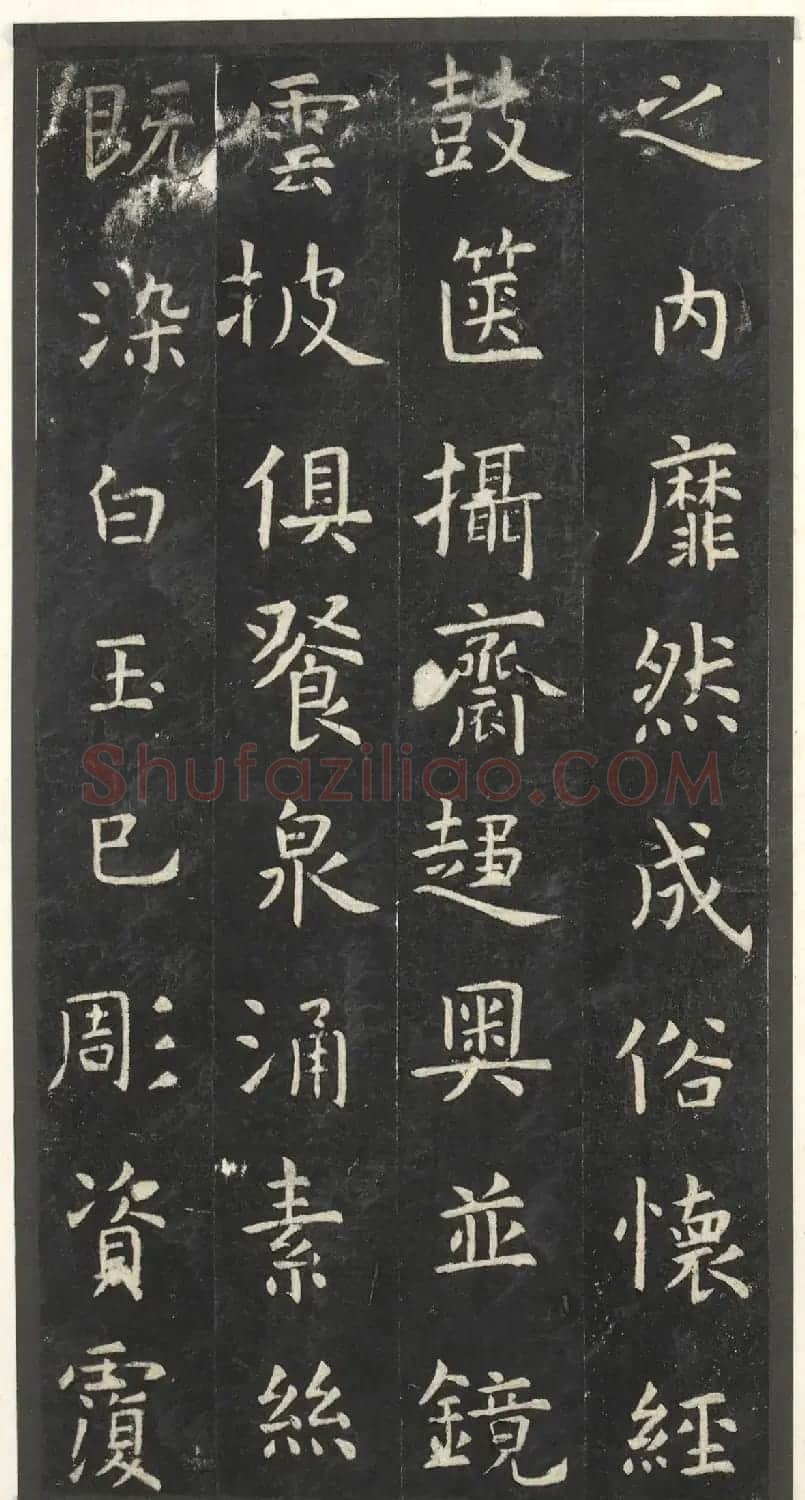 之内靡然成俗懷經
鼓篋攝齋趨奥並鏡
雲披俱餐泉涌素絲
既染白玉已彫資覆
Shufaziliao.COM